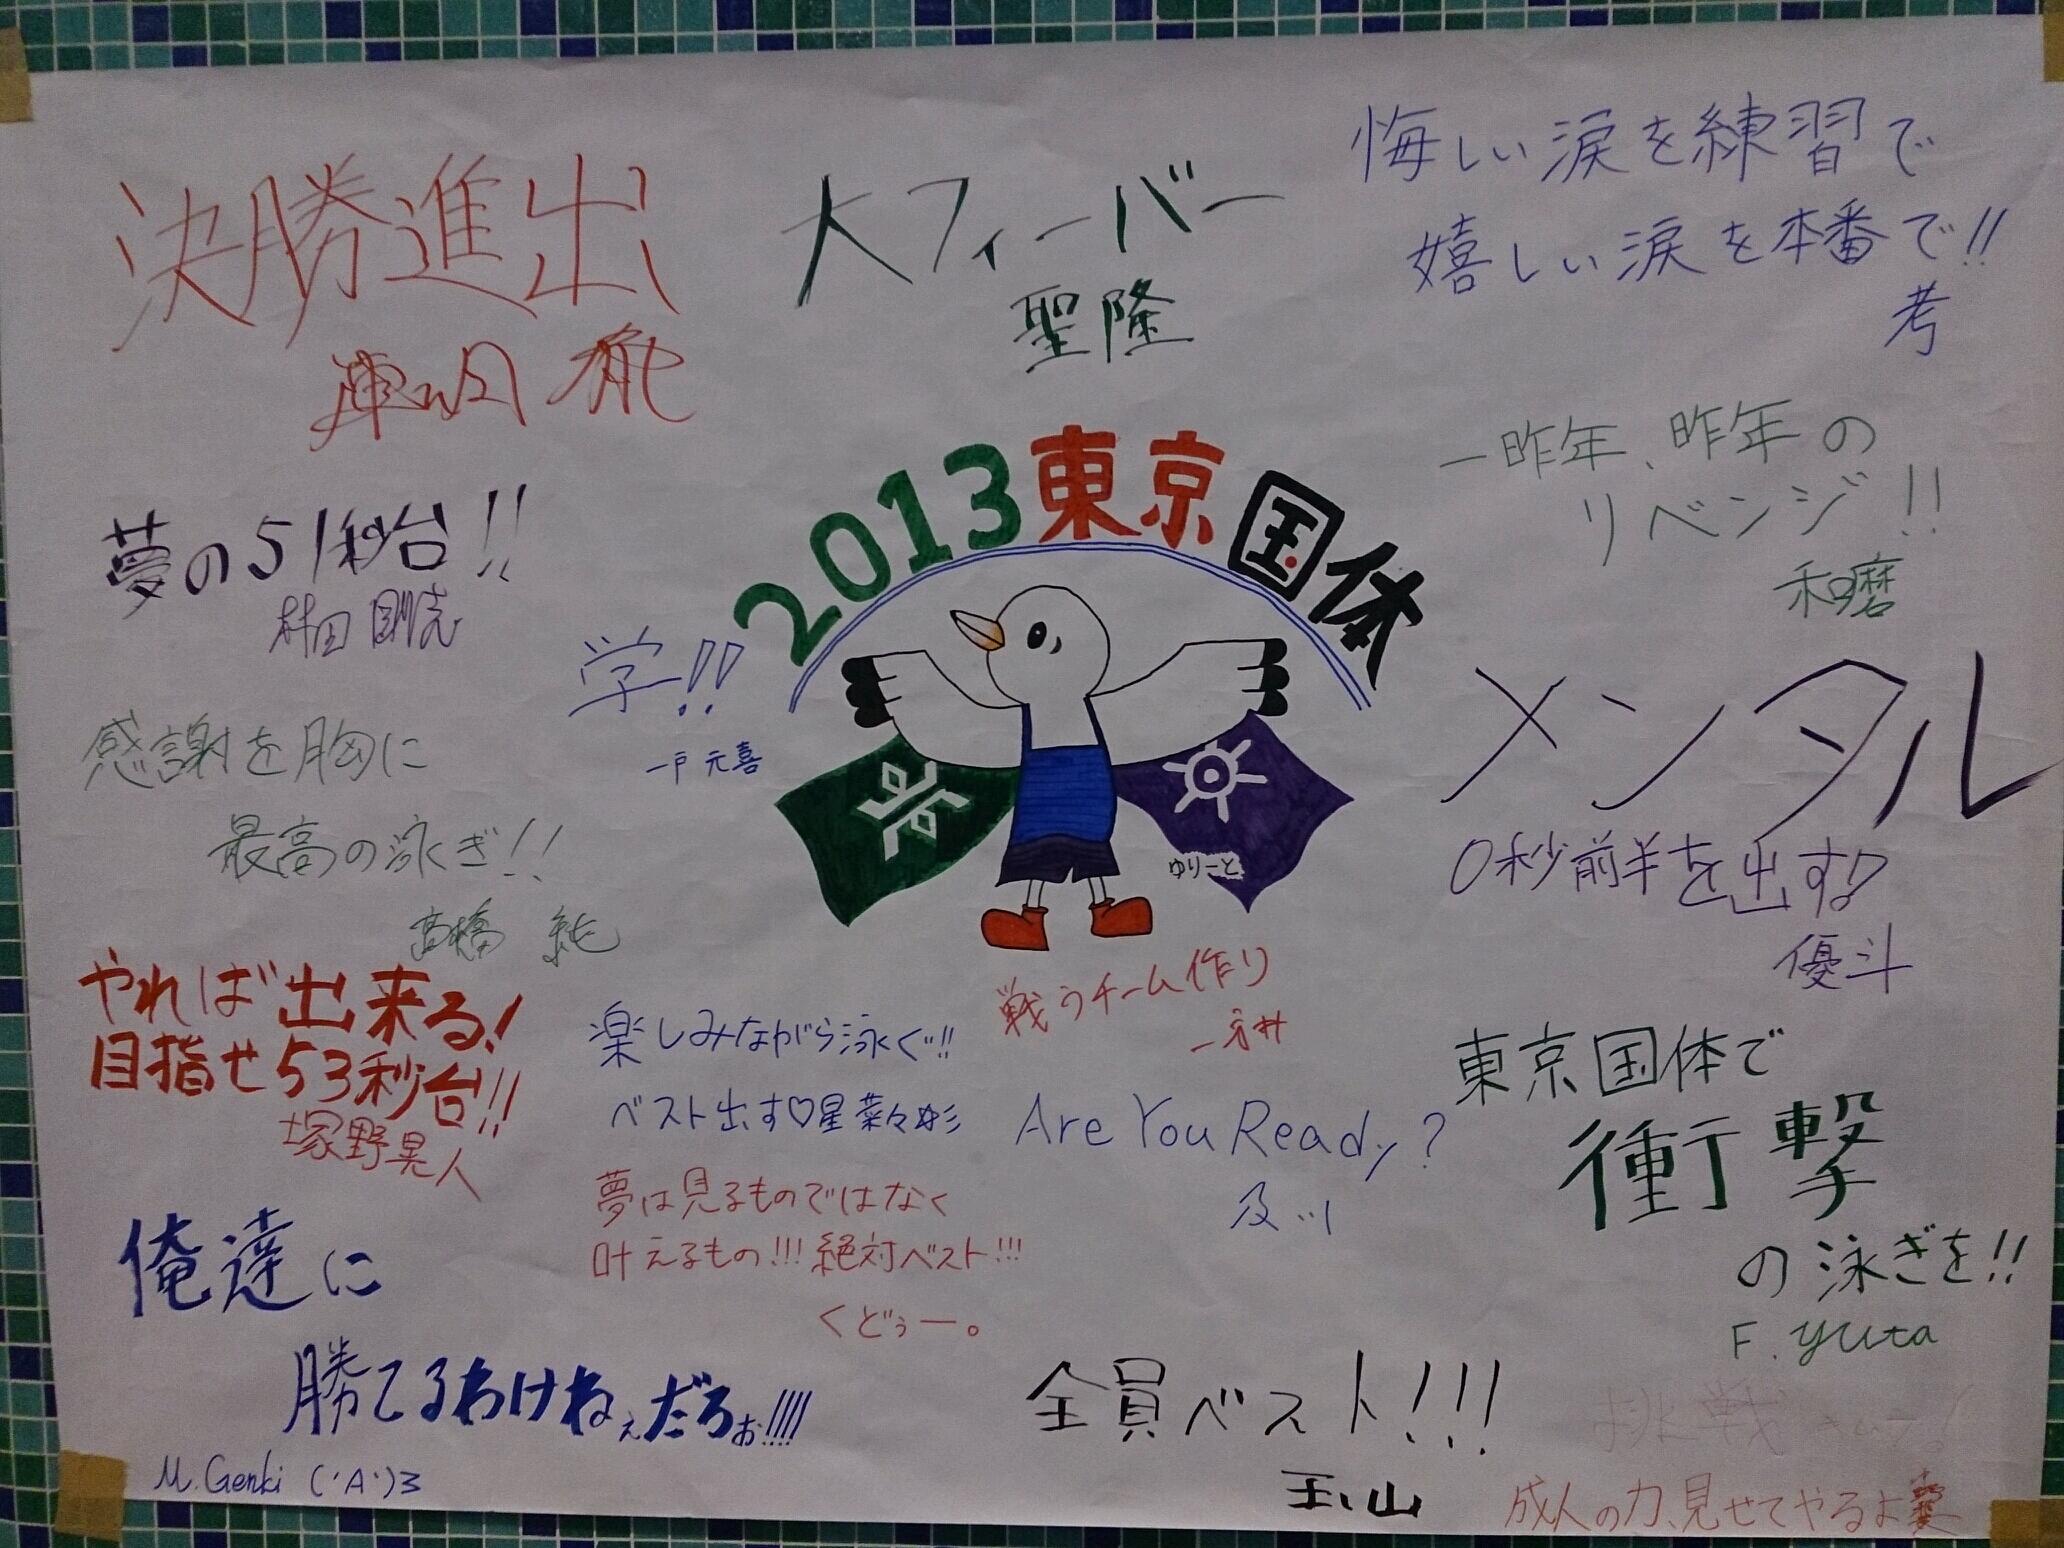 決勝進出
大フィーバー
聖隆
悔しい涙を練習で
嬉しい涙を本番で!!
考
一昨年、昨年の
リベンジ!!
和磨
夢の51秒台!!
村田 剛
学!!
一戸 元喜
2013東京国体
ゆりーと
メンタル
0秒前半を出す!
優斗
感謝を胸に
最高の泳ぎ!!
高橋 純
やれば出来る!
目指せ53秒台!!
塚野晃人
楽しみながら泳ぐ!!
ベスト出す♡星菜々
戦うチーム作り
Are You Ready?
及川
東京国体で
衝撃
の泳ぎを!!
F. yuta
夢は見るものではなく
叶えるもの!!! 絶対ベスト!!!
くどぅー。
俺達に
勝てるわけねぇだろぉ!!!!
M. Genki (´A`)3
全員ベスト!!!
玉山
挑戦
成人の力、見せてやるよ